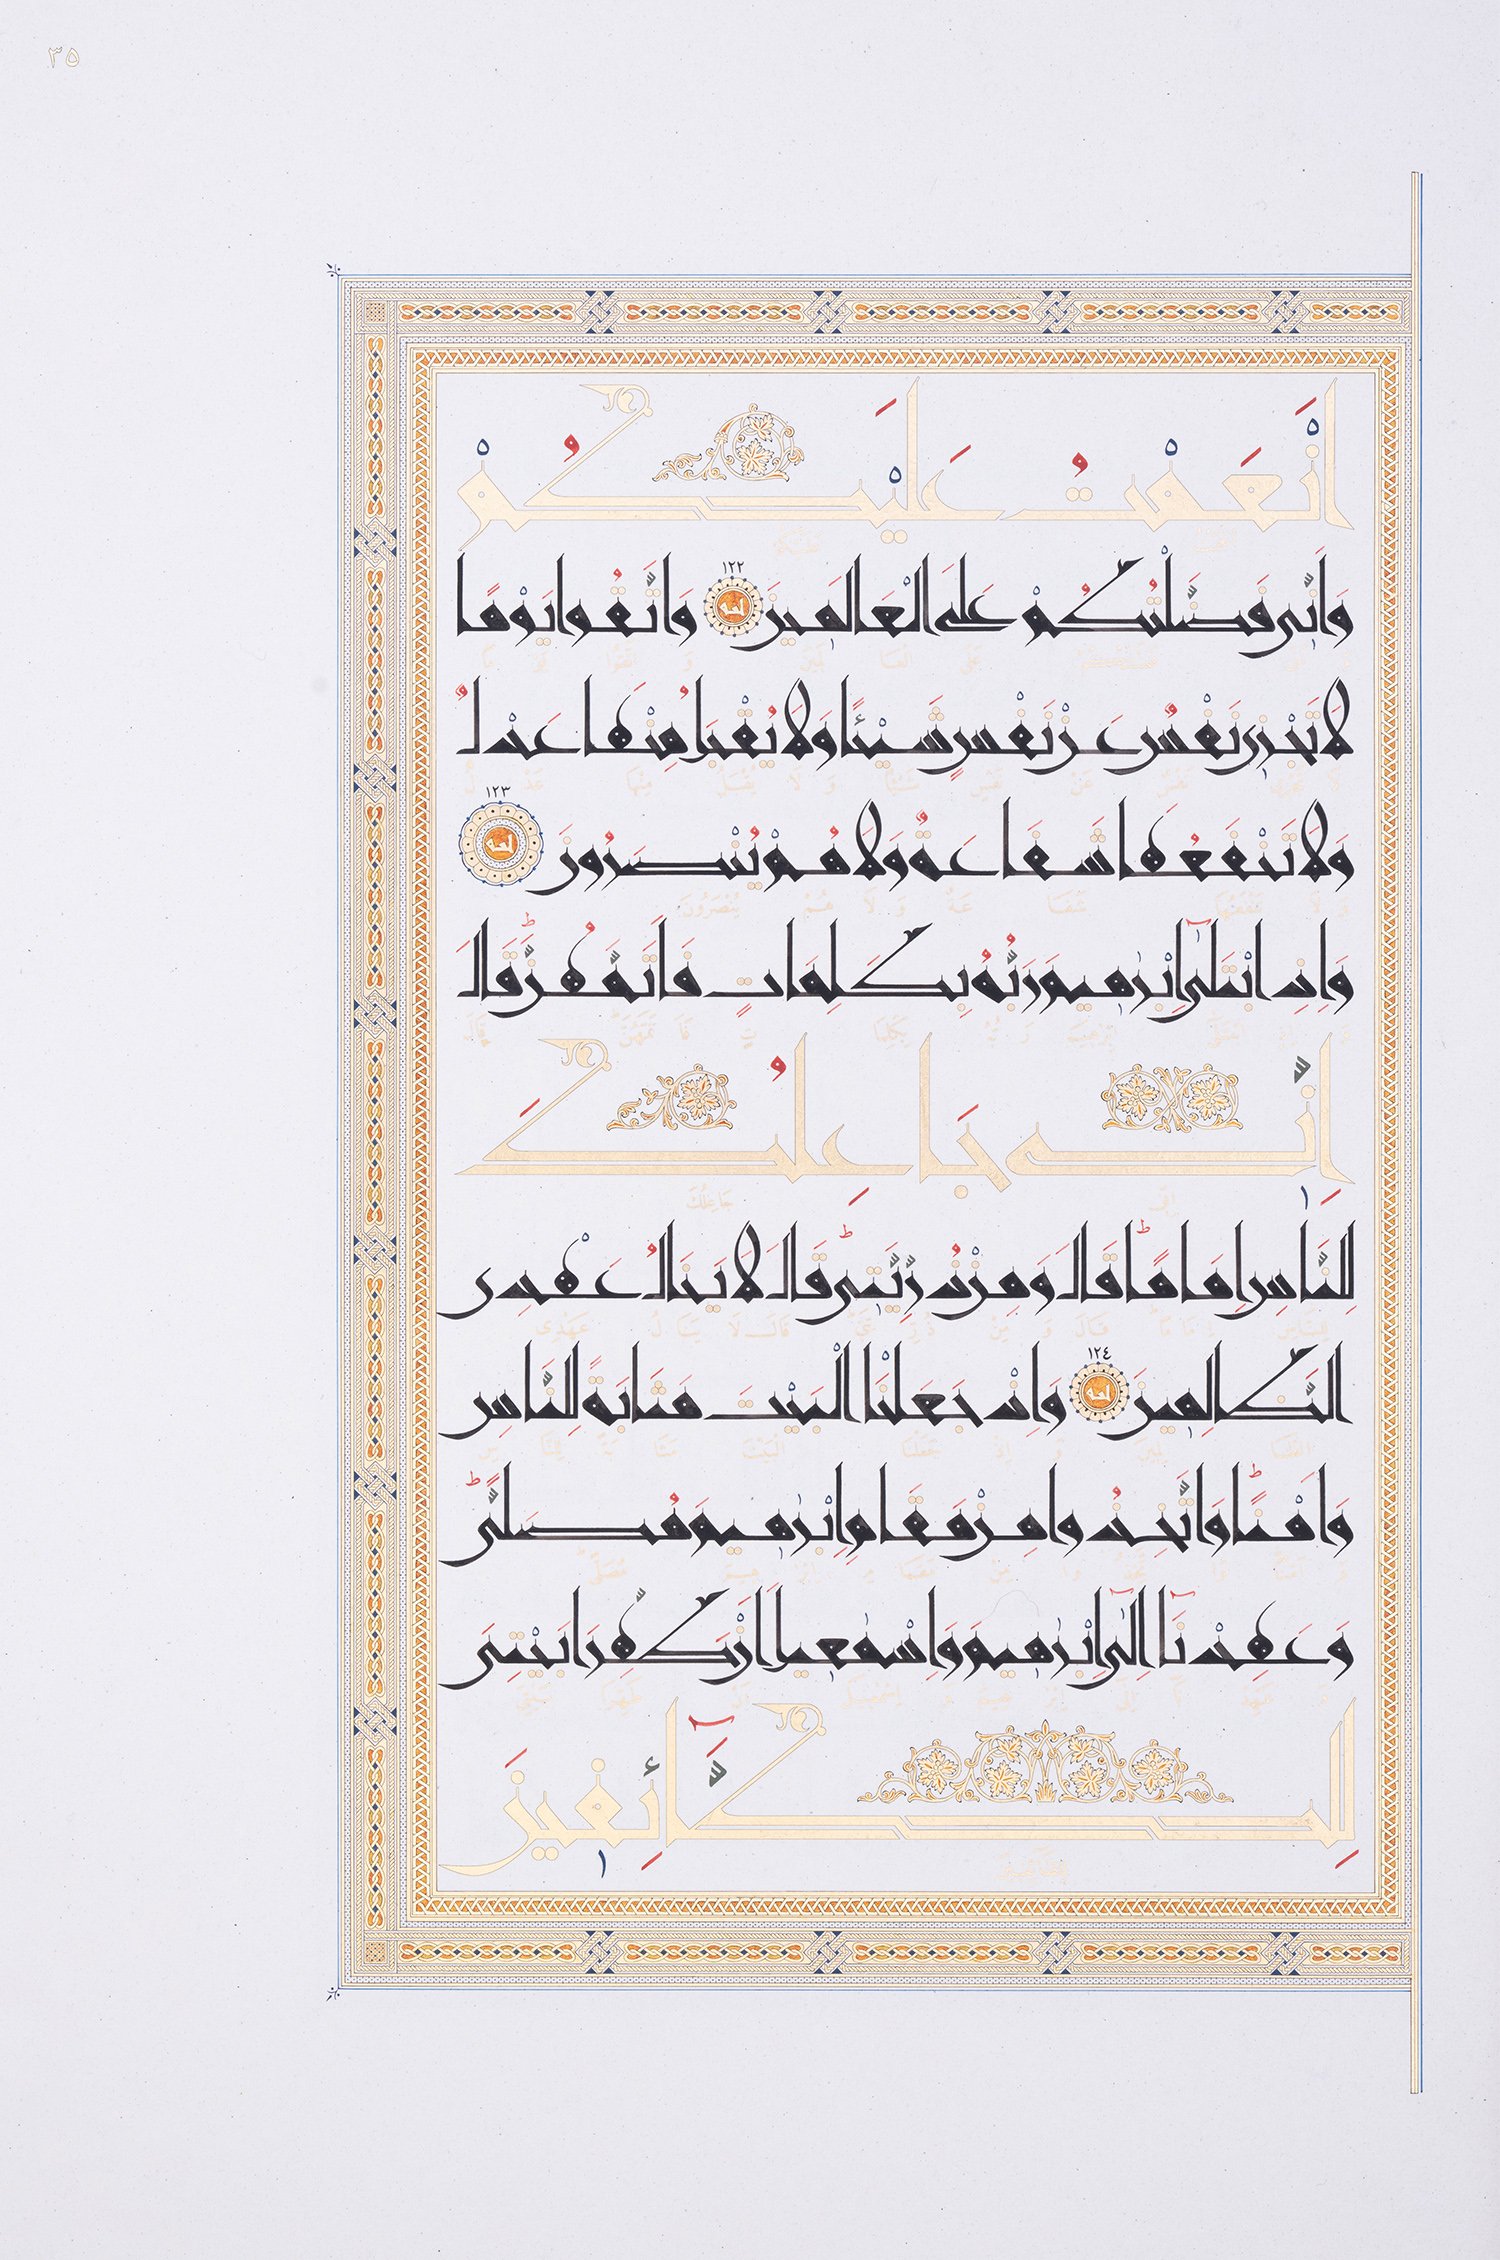 ٣٥
اَنْعَمْتُ عَلَيْكُمْ
وَاَنِّى فَضَّلْتُكُمْ عَلَى الْعَالَمِينَ ١٢٢ وَاتَّقُوا يَوْمًا
لَا تَجْزِى نَفْسٌ عَنْ نَفْسٍ شَيْئًا وَلَا يُقْبَلُ مِنْهَا عَدْلٌ
وَلَا تَنْفَعُهَا شَفَاعَةٌ وَلَا هُمْ يُنْصَرُونَ ١٢٣
وَاِذِ ابْتَلٰٓى اِبْرٰهِيمَ رَبُّهُ بِكَلِمَاتٍ فَاَتَمَّهُنَّۜ قَالَ
اِنِّى جَاعِلُكَ
لِلنَّاسِ اِمَامًا قَالَ وَمِنْ ذُرِّيَّتِى قَالَ لَا يَنَالُ عَهْدِى
الظَّالِمِينَ ١٢٤ وَاِذْ جَعَلْنَا الْبَيْتَ مَثَابَةً لِلنَّاسِ
وَاَمْنًا وَاتَّخِذُوا مِنْ مَقَامِ اِبْرٰهِيمَ مُصَلًّى
وَعَهِدْنَٓا اِلٰٓى اِبْرٰهِيمَ وَاِسْمٰعِيلَ اَنْ طَهِّرَا بَيْتِىَ
لِلطَّٓائِفِينَ